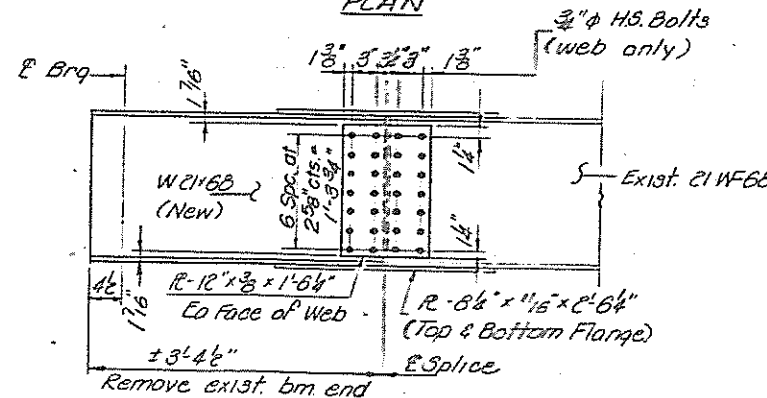 PLAN
3/4"φ H.S. Bolts
(web only)
1 3/8" 3" 3 1/2" 3" 1 3/8"
℄ Brg
1 7/16"
6 Spc. at
2 5/8" cts. =
1'-3 3/4"
1 1/4"
W 21×68
(New)
Exist. 21 WF68
1 1/4"
4 1/2"
1 7/16"
℞-12"×3/8×1'-6 1/4"
Ea Face of Web
℞-8 1/4"×11/16"×2'-6 1/4"
(Top & Bottom Flange)
±3'-4 1/2"
℄ Splice
Remove exist. bm. end